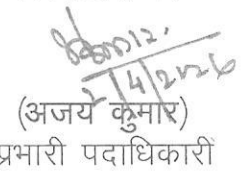 /4/2026
(अजय कुमार)
प्रभारी पदाधिकारी